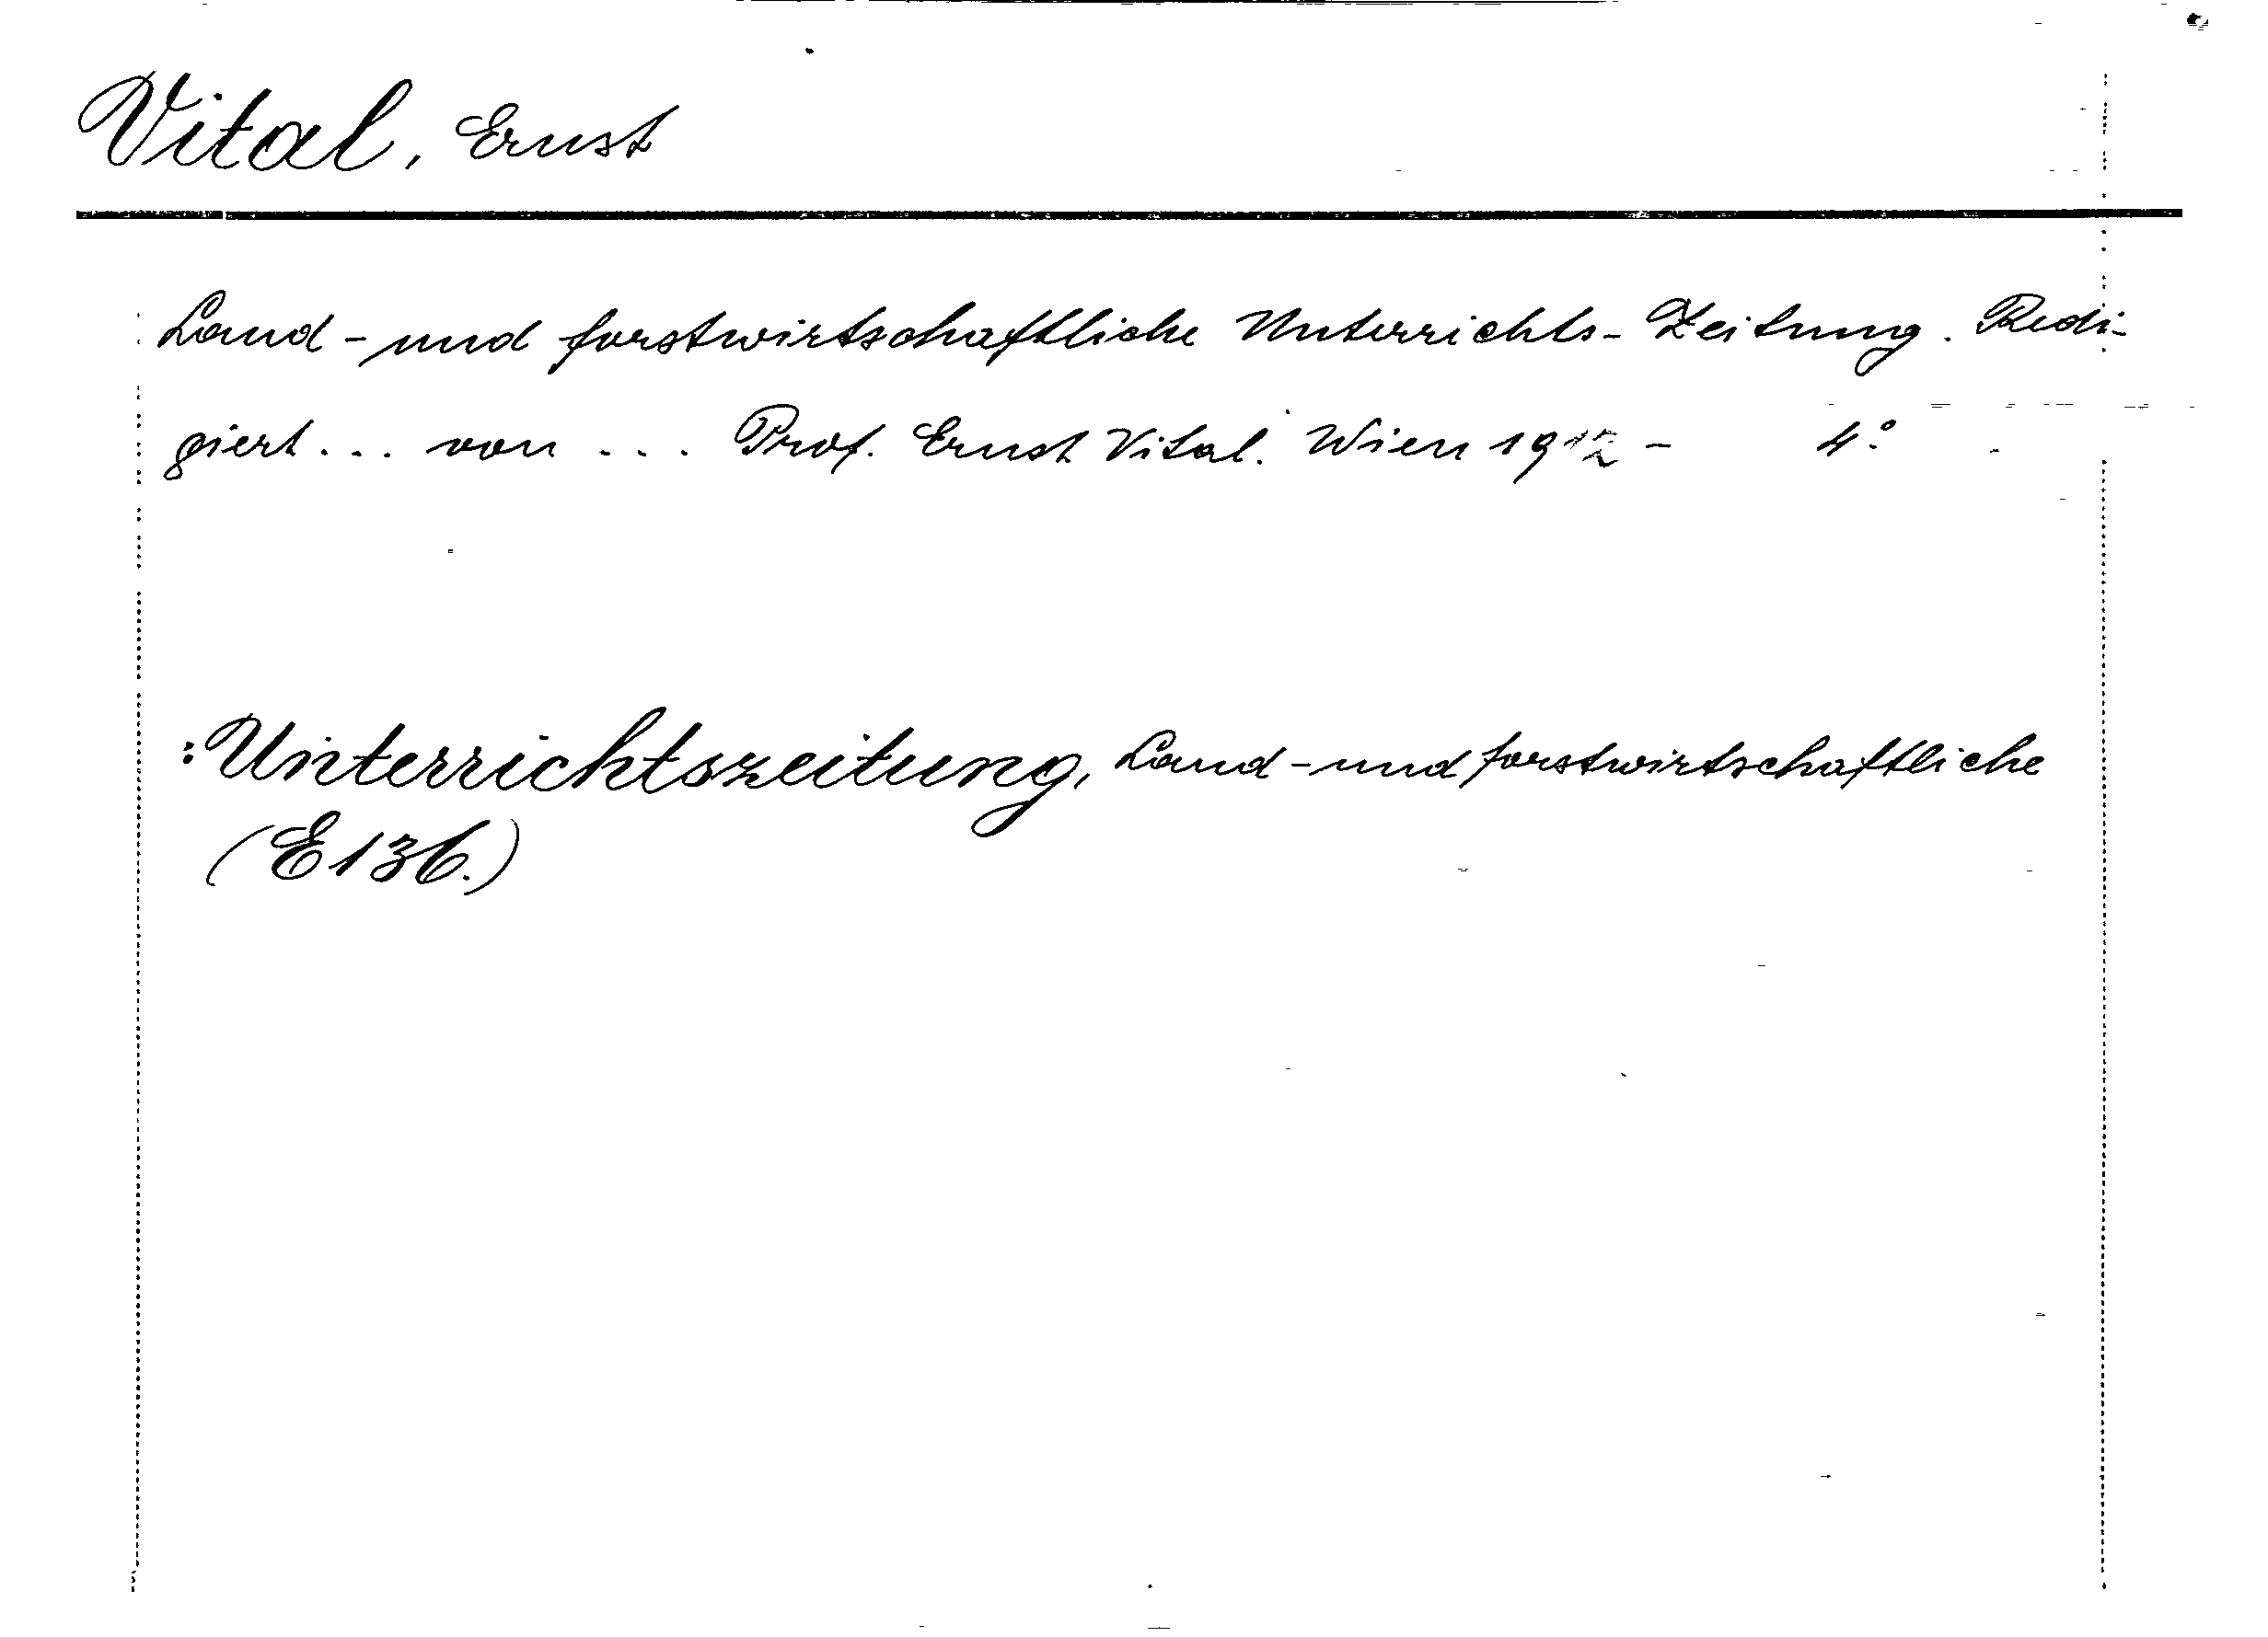 Vital, Ernst
Land- und forstwirtschaftliche Unterrichts-Zeitung. Redi-
giert... von ... Prof. Ernst Vital. Wien 1912 - 4°
: Unterrichtszeitung, Land- und forstwirtschaftliche
(E 136.)